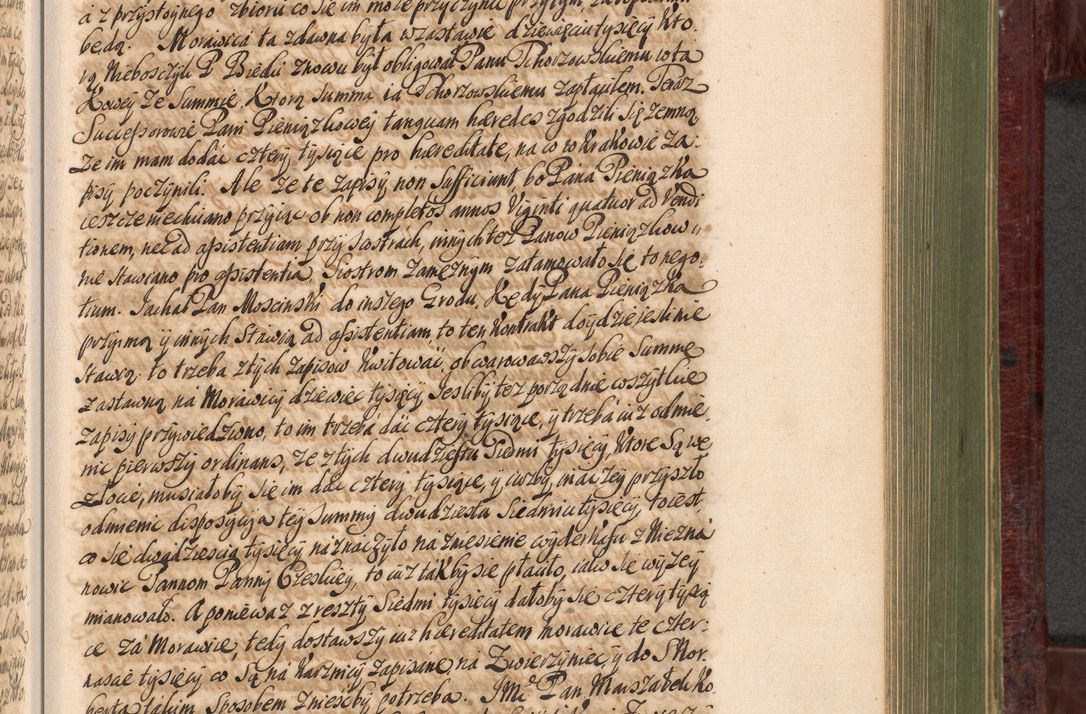 a z przystoynego zbioru co się im może przyczynić przy tym
będą. Morawica ta zdawna była w zastawie dziewięciu tysięcy kto„
rą Nieboszczyk P Bredii znowu był obligował Panu Pchorzowskiemu w ta
kowey ze Summie, Ktorą Summą ia Pchorzowskiemu zapłaiłem. Teraz
Successorowie Pani Pieniązkowey tanquam hæredes zgodzili się zemną
że im mam dodać cztery tysiące pro hæreditate, na co w Krakowie za„
pisy poczynili. Ale że te zapisy non sufficiunt, bo Pana Pieniązka
ieszcze niechciano przyiąc ob non completos annos Viginti quatuor ad Vendi
tionem, nec ad assistentiam przy siostrach, innych też Panow Pieniązkow„
nie stawiano pro assistentia Siostrom zamęznym zatamowało się to nego„
tium. Jachał Pan Moscinski do inszego Grodu, Kędy Pana Pieniązka
przyimą y innych Stawią ad assistentiam, to ten Kontrakt doydzie ieśli nie
stawią to trzeba z tych zapisow kwitować, obwarowawszy sobie Summę
zastawną na Morawicy dziewięc tysięcy Jesliby też porządnie wszytkie
zapisy przywiedziono, to im trzeba dać cztery tysiące, y trzeba iuż odmie„
nic pierwszy ordinans, że z tych dwudziestu siedmi tysięcy, ktore są we
złocie, musiałoby się im dać cztery tysiące, y iużby, inaczey przyszło
odmienic disposycyą tey summy dwudziesta siedmiu tysięcy, to iest
co się dwadziescia tysięcy náznaczyło na zniesienie wyderkafu z Niezná
nowic Pannom Panny Czeskiey, to iuż tak by się płaciło, iako się wyżey
mianowało. A ponieważ z reszty siedmi tysięcy dałoby się cztery tysią
ce zá Morawicę, tedy dostawszy iuż hæreditatem morawice te czter„
nascie tysięcy co Są ná Karznicy zapisane, na Zwierzyniec, y do S Nor„
berta takim Sposobem znieśćby potrzeba. JMć Pan Marszałek Ko„